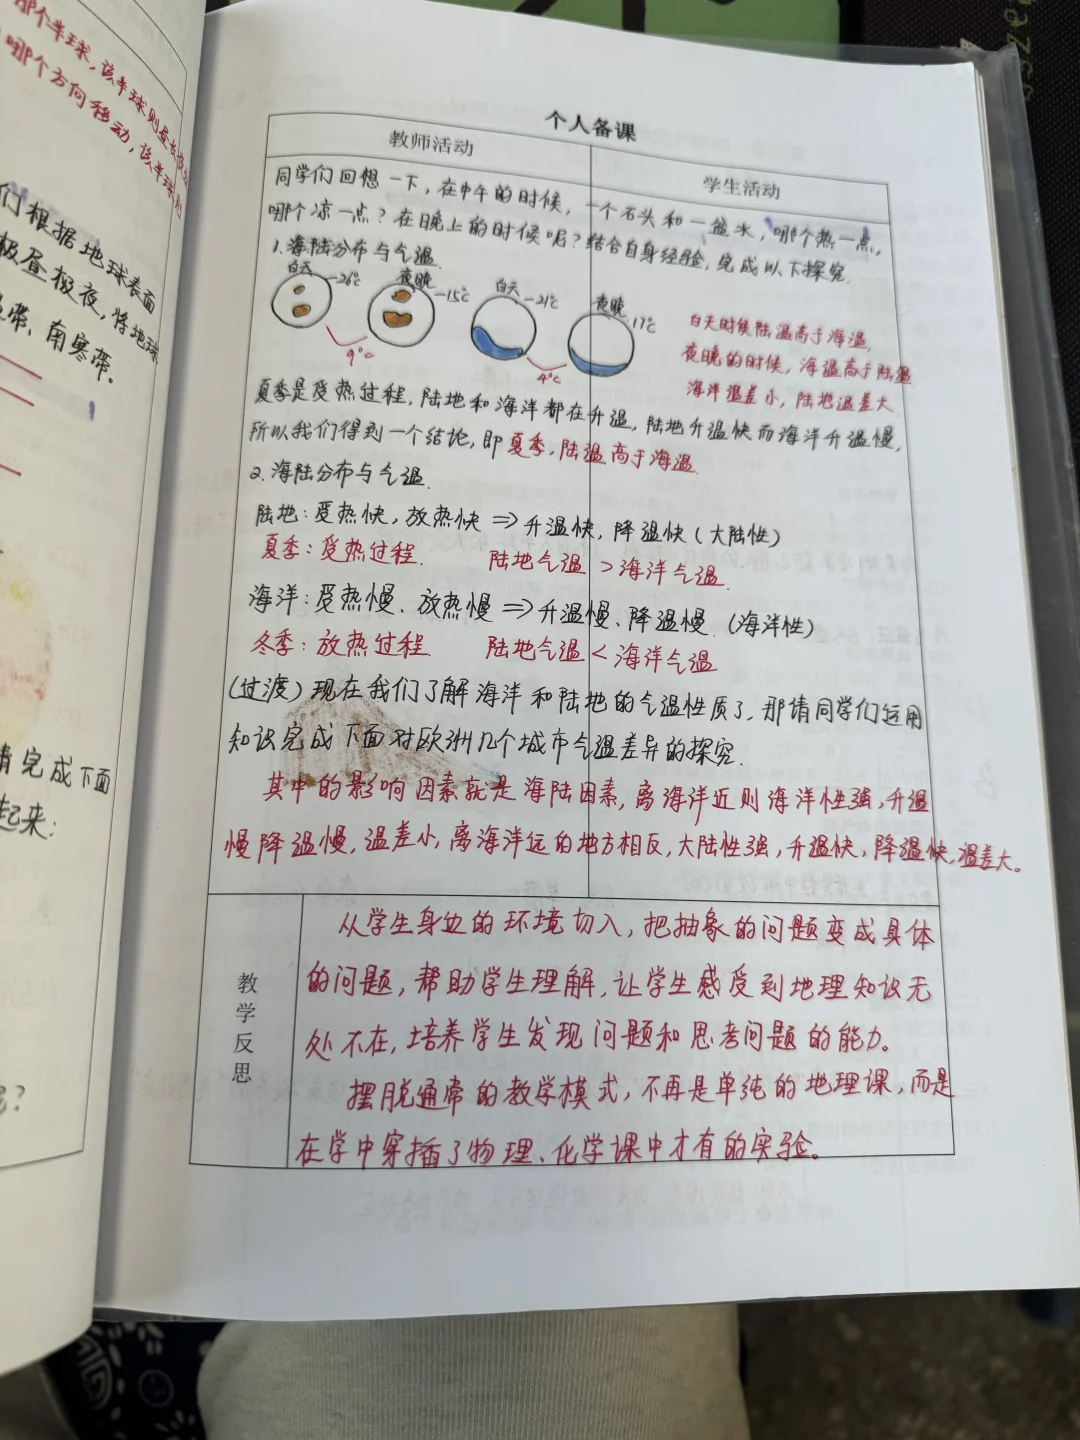 哪个半球，该半球则昼长夜
哪个方向移动，该半球则
们根据地球表面
极昼极夜，将地球
带、南寒带。
请完成下面
起来：
个人备课
教师活动
学生活动
同学们回想一下，在中午的时候，一个石头和一盆水，哪个热一点，
哪个凉一点？在晚上的时候呢？结合自身经验，完成以下探究.
1.海陆分布与气温.
白天 26℃ 夜晚 15℃ 白天 21℃ 夜晚 17℃
9℃ 4℃
白天时候陆温高于海温，
夜晚的时候，海温高于陆温
海洋温差小，陆地温差大.
夏季是受热过程，陆地和海洋都在升温，陆地升温快而海洋升温慢，
所以我们得到一个结论，即夏季，陆温高于海温.
2.海陆分布与气温.
陆地：受热快，放热快 => 升温快，降温快（大陆性）
夏季：受热过程. 陆地气温 > 海洋气温.
海洋：受热慢、放热慢 => 升温慢、降温慢.（海洋性）
冬季：放热过程. 陆地气温 < 海洋气温
（过渡）现在我们了解海洋和陆地的气温性质了，那请同学们运用
知识完成下面对欧洲几个城市气温差异的探究.
其中的影响因素就是海陆因素，离海洋近则海洋性强，升温
慢降温慢，温差小，离海洋远的地方相反，大陆性强，升温快，降温快，温差大。
教学反思
从学生身边的环境切入，把抽象的问题变成具体
的问题，帮助学生理解，让学生感受到地理知识无
处不在，培养学生发现问题和思考问题的能力。
摆脱通常的教学模式，不再是单纯的地理课，而是
在学中穿插了物理、化学课中才有的实验。